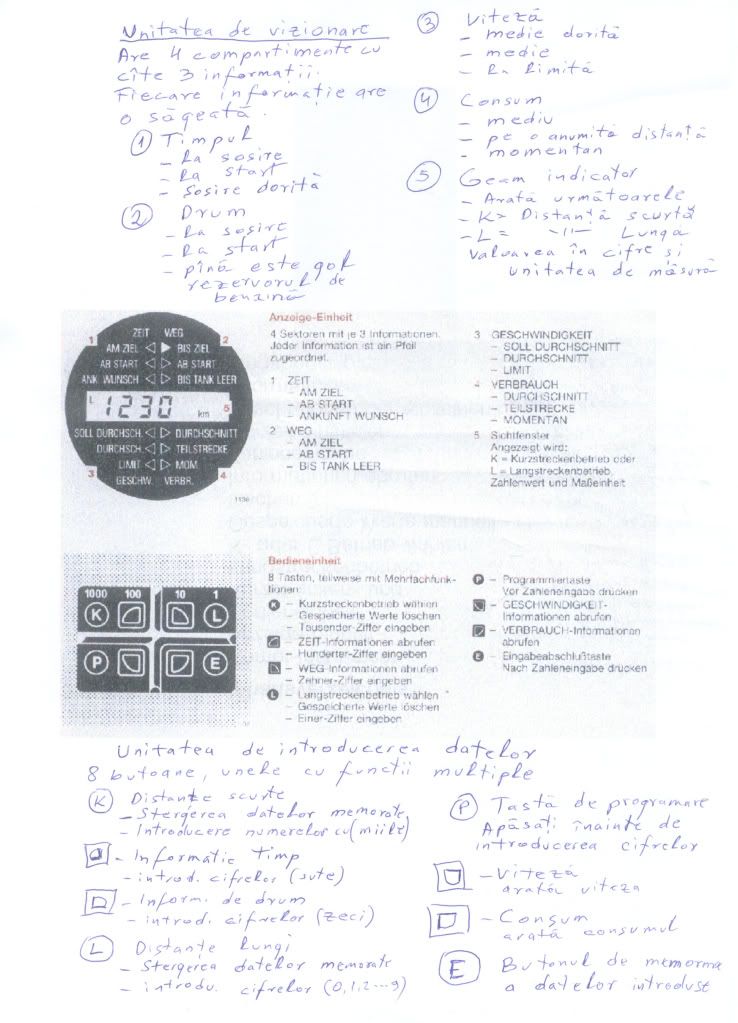 Unitatea de vizionare
Are 4 compartimente cu
cîte 3 informații.
Fiecare informație are
o săgeată.
① Timpul
- la sosire
- la start
- sosire dorită
② Drum
- la sosire
- la start
- pînă este gol
rezervorul de
benzină
③ Viteză
- medie dorită
- medie
- la limită
④ Consum
- mediu
- pe o anumită distanță
- momentan
⑤ Geam indicator
- Arată următoarele
- K= Distanță scurtă
- L= -"- Lunga
Valoarea în cifre și
unitatea de măsură
ZEIT WEG
1 2
AM ZIEL BIS ZIEL
AB START AB START
ANK WUNSCH BIS TANK LEER
L 1230 km 5
SOLL DURCHSCH. DURCHSCHNITT
DURCHSCH. TEILSTRECKE
LIMIT MOM.
3 4
GESCHW. VERBR.
1136
Anzeige-Einheit
4 Sektoren mit je 3 Informationen.
Jeder Information ist ein Pfeil
zugeordnet.
1 ZEIT
– AM ZIEL
– AB START
– ANKUNFT WUNSCH
2 WEG
– AM ZIEL
– AB START
– BIS TANK LEER
3 GESCHWINDIGKEIT
– SOLL DURCHSCHNITT
– DURCHSCHNITT
– LIMIT
4 VERBRAUCH
– DURCHSCHNITT
– TEILSTRECKE
– MOMENTAN
5 Sichtfenster
Angezeigt wird:
K = Kurzstreckenbetrieb oder
L = Langstreckenbetrieb,
Zahlenwert und Maßeinheit
1000 100 10 1
K L
P E
Bedieneinheit
8 Tasten, teilweise mit Mehrfachfunk-
tionen:
K – Kurzstreckenbetrieb wählen
– Gespeicherte Werte löschen
– Tausender-Ziffer eingeben
– ZEIT-Informationen abrufen
– Hunderter-Ziffer eingeben
– WEG-Informationen abrufen
– Zehner-Ziffer eingeben
L – Langstreckenbetrieb wählen
– Gespeicherte Werte löschen
– Einer-Ziffer eingeben
P – Programmiertaste
Vor Zahleneingabe drücken
– GESCHWINDIGKEIT-
Informationen abrufen
– VERBRAUCH-Informationen
abrufen
E – Eingabeabschlußtaste
Nach Zahleneingabe drücken
Unitatea de introducerea datelor
8 butoane, unele cu funcții multiple
K Distanțe scurte
- Stergerea datelor memorate
- Introducere numerelor cu (miile)
- Informatie timp
- introd. cifrelor (sute)
- Inform. de drum
- introd. cifrelor (zeci)
L Distanțe lungi
- Stergerea datelor memorate
- introdu. cifrelor (0,1,2...9)
P Tastă de programare
Apăsați înainte de
introducerea cifrelor
- Viteză
arată viteza
- Consum
arată consumul
E Butonul de memorma
a datelor introduse